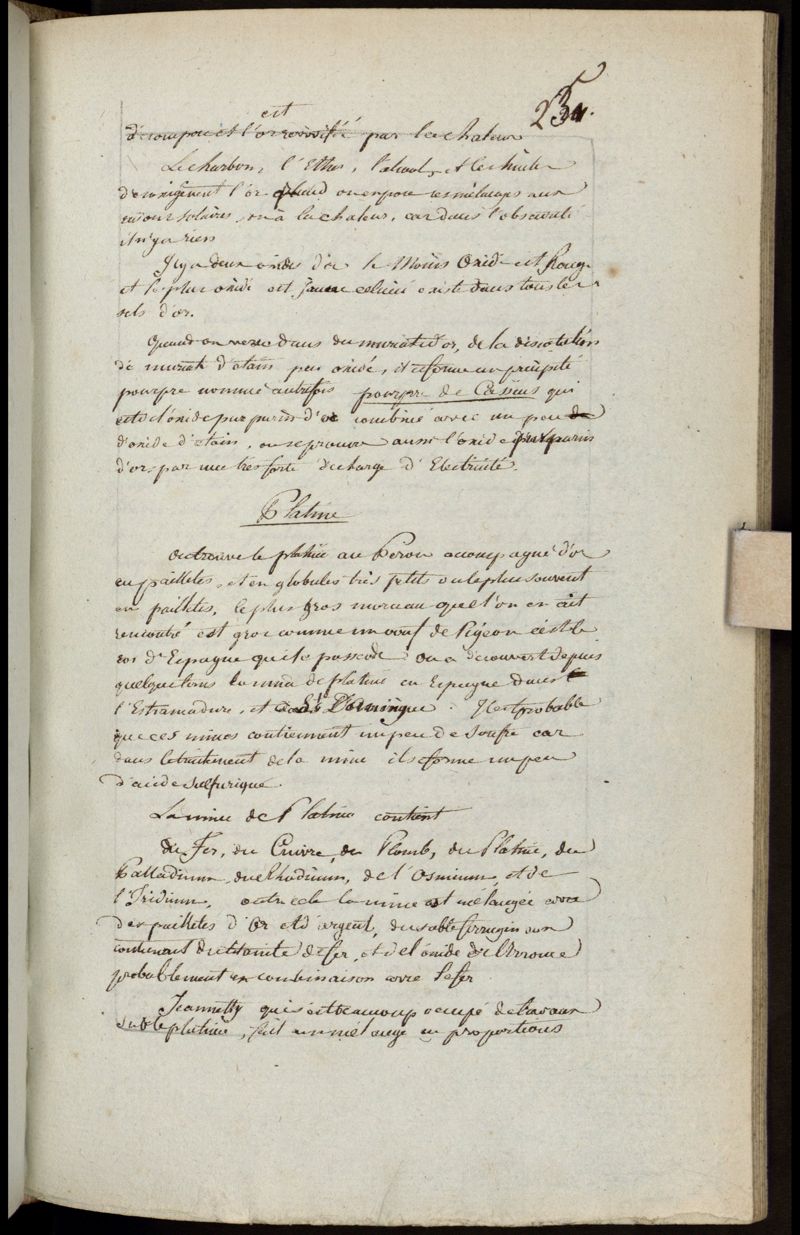 235.
est
décomposé et l'or revivifié par la chaleur
Le charbon, l'Ether, l'alcool, et les huiles
désoxigènent l'or quand on expose ces mélanges aux
rayons solaires, ou à la chaleur, car dans l'obscurité
il n'y a rien
Il y a deux oxides d'or le Moins Oxidé est Rouge
et le plus oxidé est jaune celui ci existe dans tous les
sels d'or.
Quand on verse dans du muriate d'or, de la dissolution
de muriate d'étain peu oxidé, il se forme un précipité
pourpre nommé autrefois pourpre de Cassius qui
est de l'oxide purpurin d'or combiné avec un peu de
d'oxide d'étain, on se procure aussi l'oxide purpurin
d'or, par une très forte décharge d'Electricité.
Platine
On trouve le platine au Pérou accompagné d'or
en paillettes, et en globules très petits ou le plus souvent
en paillettes, le plus gros morceau que l'on en ait
rencontré est gros comme un oeuf de Pigeon c'est le
roi d'Espagne qui le possede. On a découvert depuis
quelque tems la mine de platine en Espagne dans
l'Estramadure, et à St Domingue. Il est probable
que ces mines contiennent un peu de soufre car
dans le traitement de la mine il se forme un peu
d'acide sulfurique.
La mine de Platine contient
du Fer, du Cuivre, du Plomb, du Platine, du
Palladium, du Rhodium, de l'Osmium, et de
l'Iridium, outre cela la mine est mélangée avec
des paillettes d'Or et d'argent, du sable ferrugineux
contenant du titanite de fer, et de l'oxide de Chrome
probablement en combinaison avec le fer.
Jeannetty qui s'est beaucoup occupé de travaux
sur le platine, fait un mélange en proportions